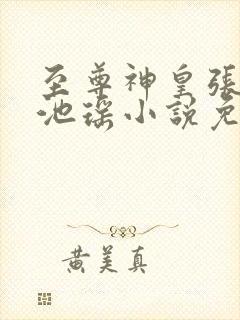 至尊神皇張
池瑤小說免
黄美真